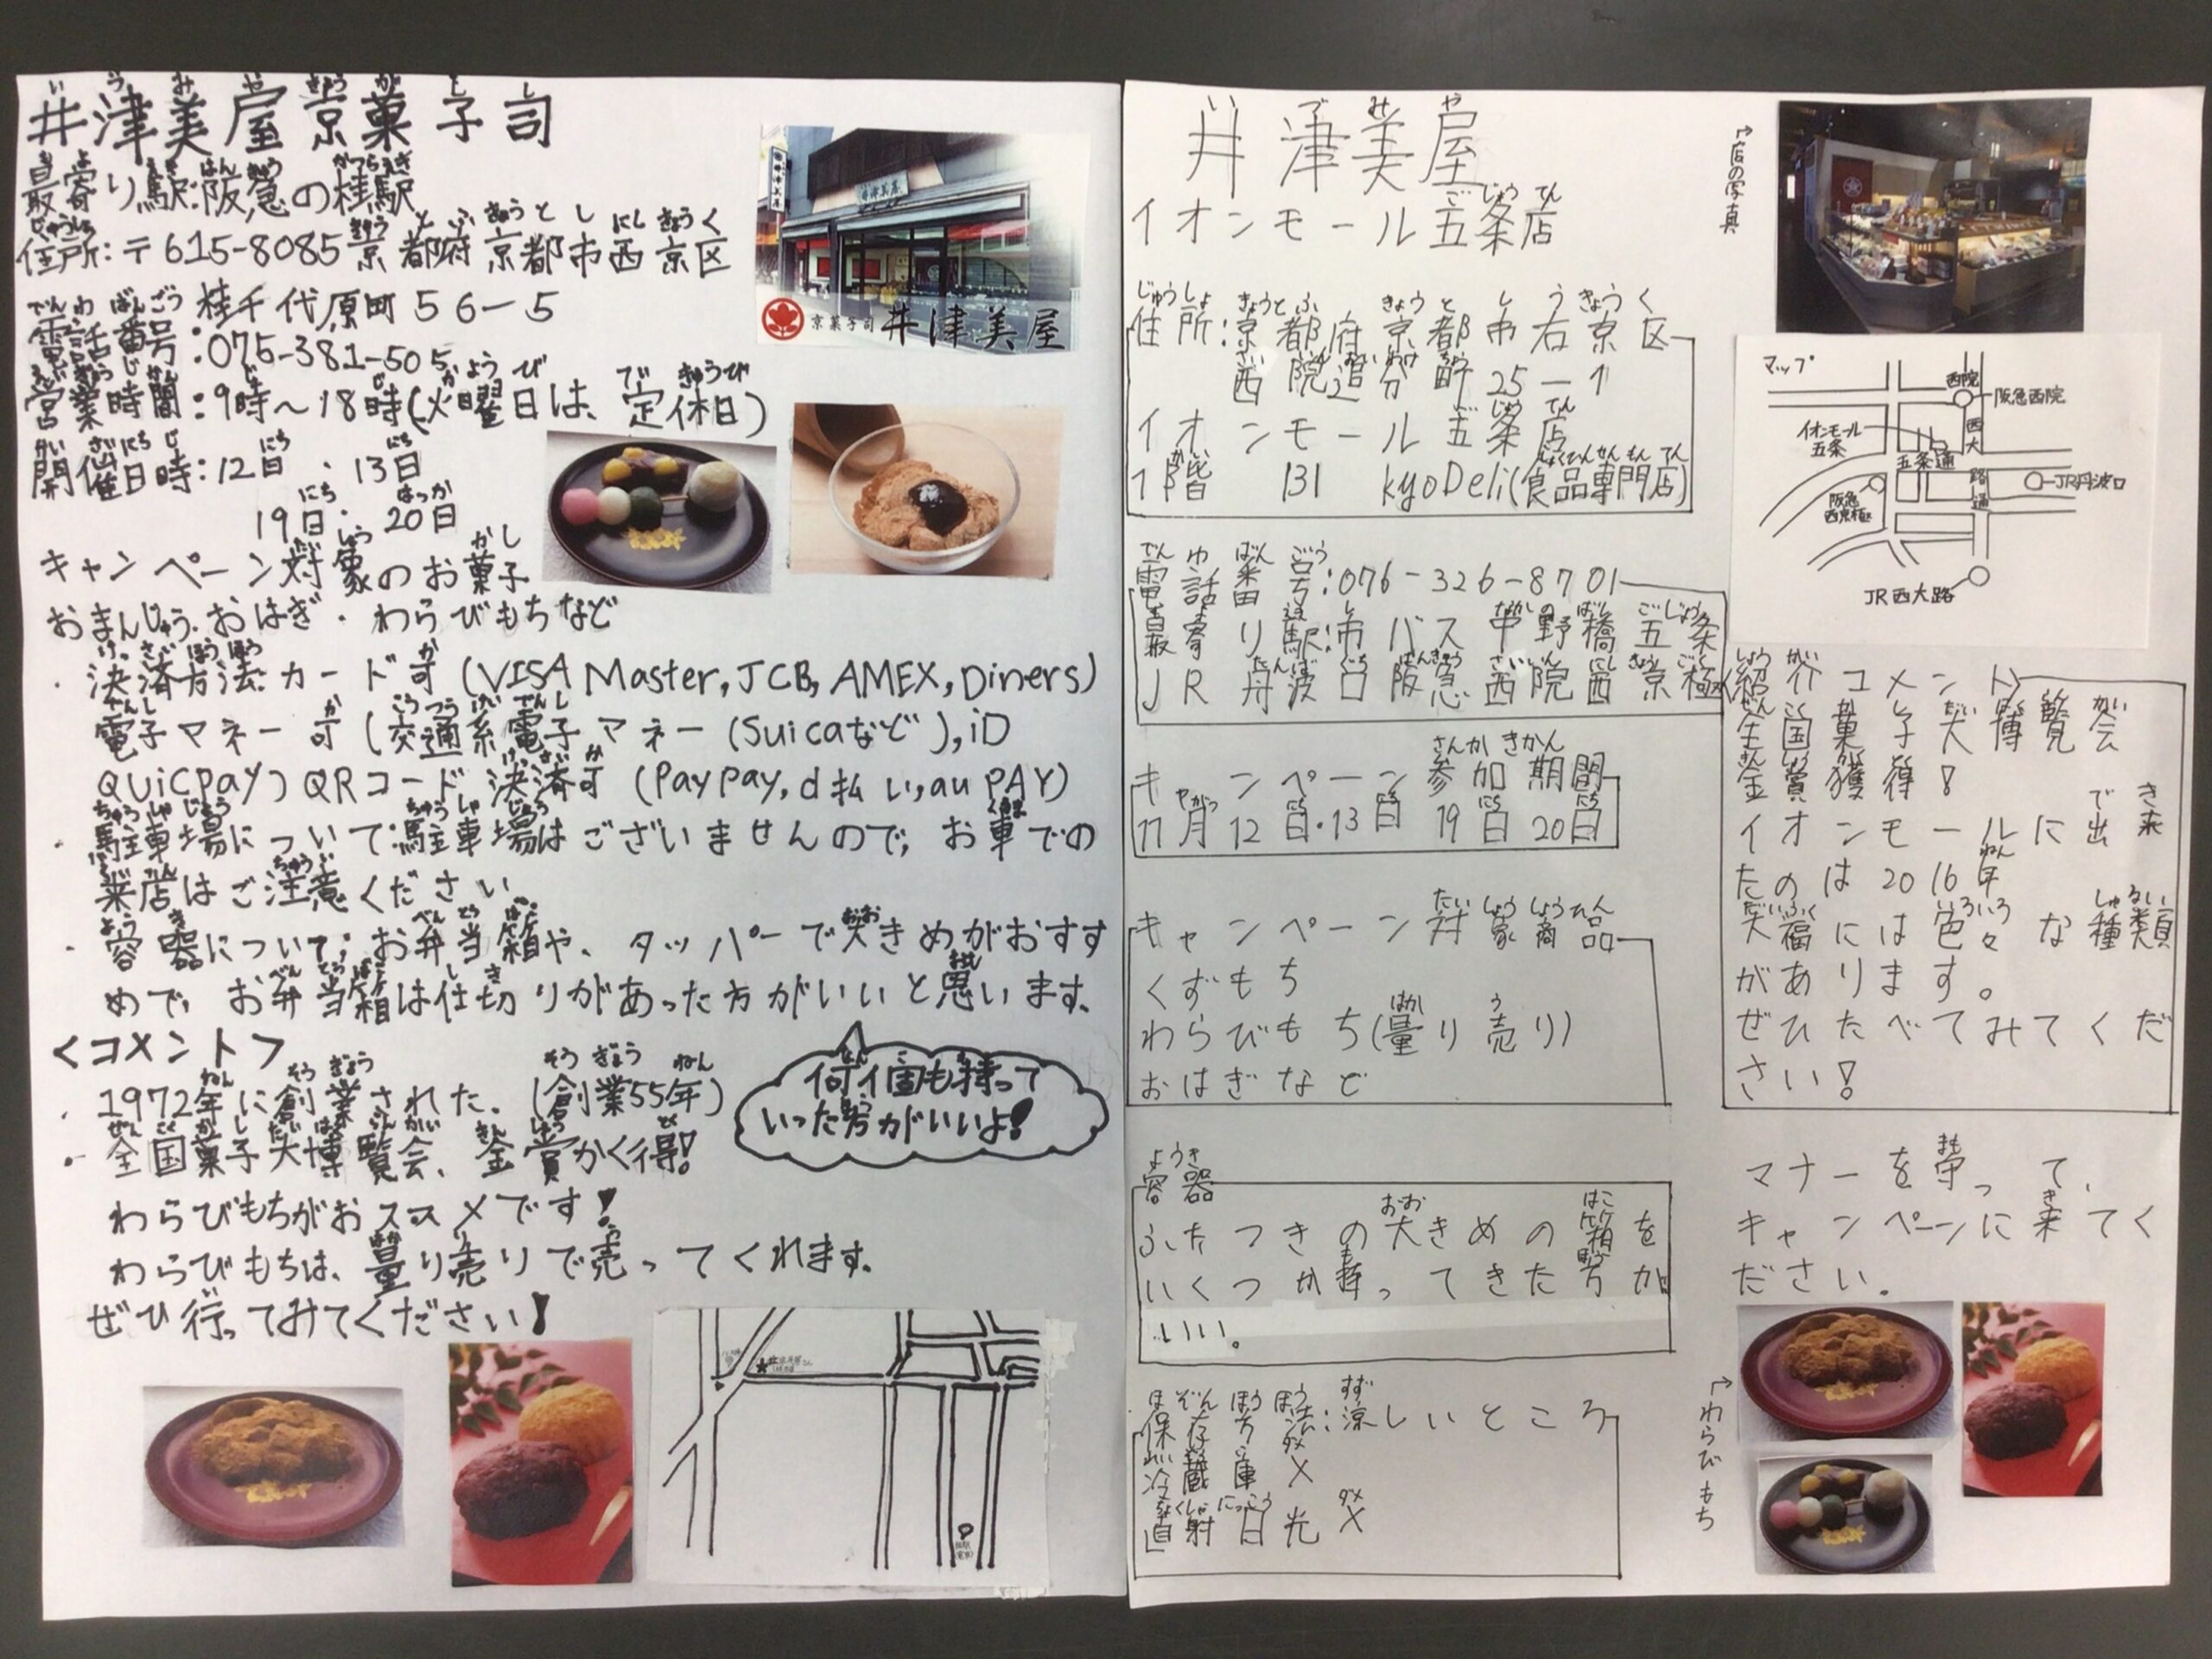 井津美屋京菓子司
最寄り駅:阪急の桂駅
住所:〒615-8085京都府京都市西京区
桂千代原町56-5
電話番号:075-381-505
営業時間:9時～18時(火曜日は、定休日)
開催日時:12日・13日
19日・20日
キャンペーン対象のお菓子
おまんじゅう・おはぎ・わらびもちなど
・決済方法:カード可(VISA Master,JCB,AMEX,Diners)
電子マネー可(交通系電子マネー(Suicaなど),iD
QUicPay)QRコード決済可(Paypay,d払い,auPAY)
・駐車場について:駐車場はございませんので、お車での
来店はご注意ください
・容器について;お弁当箱や、タッパーで大きめがおすす
めで、お弁当箱は仕切りがあった方がいいと思います。
<コメント>
・1972年に創業された。(創業55年)
・全国菓子大博覧会、金賞かく得!
わらびもちがおススメです!
わらびもちは、量り売りで売ってくれます。
ぜひ行ってみてください!
何個も持って
いった方がいいよ!
井津美屋
京菓子司 井津美屋
井津美屋
イオンモール五条店
住所:京都府京都市右京区
西院追分町25-1
イオンモール五条店
1階 131 kyoDeli(食品専門店)
電話番号:076-326-8701
最寄り駅:市バス中野橋五条
JR丹波口阪急西院西京極
キャンペーン参加期間
11月12日・13日 19日20日
キャンペーン対象商品
くずもち
わらびもち(量り売り)
おはぎなど
容器
ふたつきの大きめの箱を
いくつか持ってきた方が
いい。
保存方法:涼しいところ
冷蔵庫×
直射日光×
→店の写真
マップ
西院
阪急西院
イオンモール
五条
五条通
西大
路
通
JR丹波口
阪急
西京極
JR西大路
紹介コメント
全国菓子大博覧会
金賞獲得!
イオンモールに出来
たのは2016年
大福には色々な種類
があります。
ぜひたべてみてくだ
さい!
マナーを守って、
キャンペーンに来てく
ださい。
→わらびもち